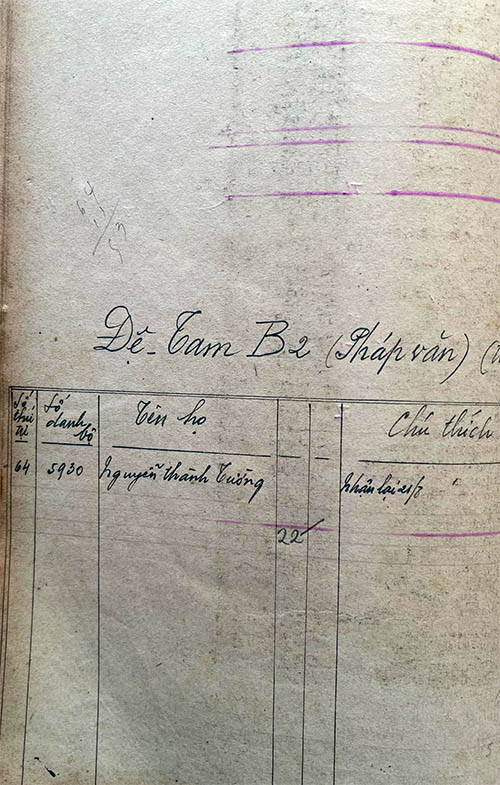 64
Đệ-Tam B2 (Pháp văn)
Số thứ tự
Số danh bộ
Tên họ
Chú thích
64 5930 Nguyễn thành Tường Nhận lại 21/8
22